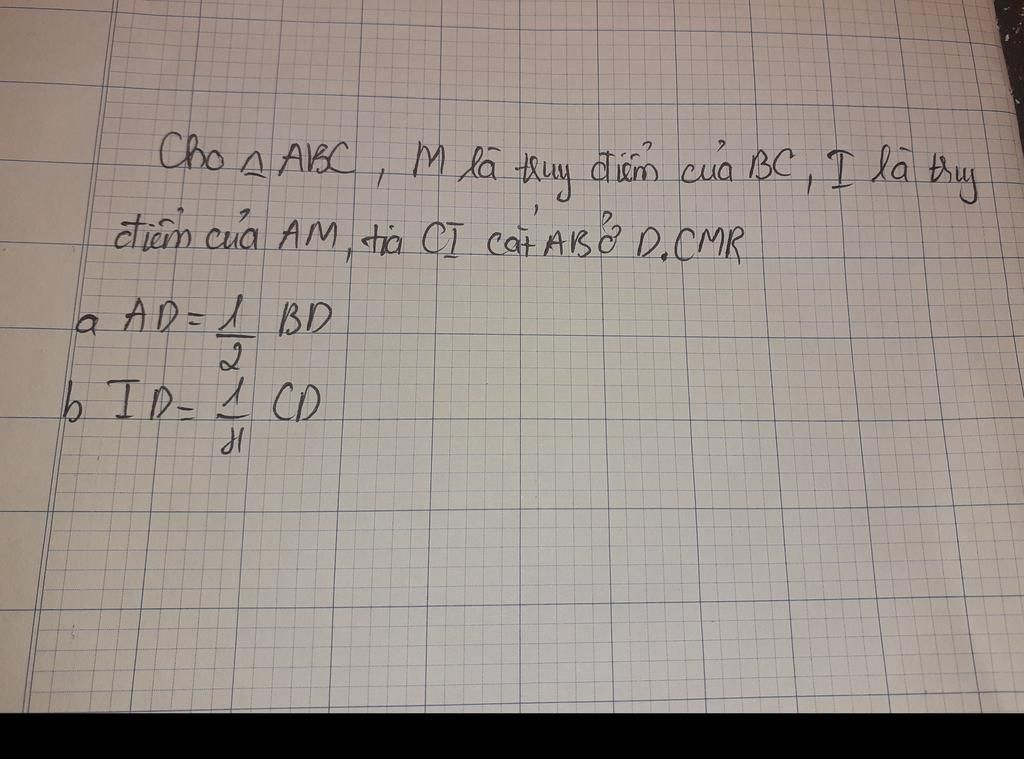 Cho △ ABC, M là truy điểm của BC, I là truy
điểm của AM, tia CI cắt AB ở D. CMR
a AD = 1/2 BD
b ID = 1/4 CD